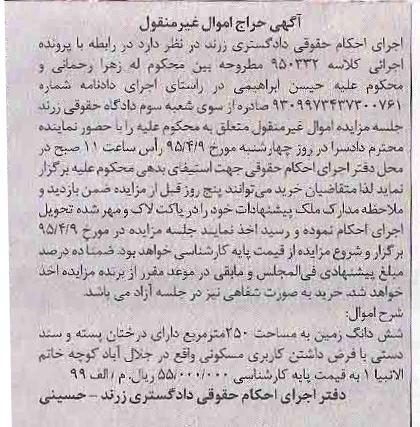 آگهی حراج اموال غیرمنقول
اجرای احکام حقوقی دادگستری زرند در نظر دارد در رابطه با پرونده
اجرائی کلاسه ۹۵۰۳۳۲ مطروحه بین محکوم له زهرا رحمانی و
محکوم علیه حیسن ابراهیمی در راستای اجرای دادنامه شماره
۹۳۰۹۹۷۳۴۳۷۳۰۰۷۶۱ صادره از سوی شعبه سوم دادگاه حقوقی زرند
جلسه مزایده اموال غیرمنقول متعلق به محکوم علیه را با حضور نماینده
محترم دادسرا در روز چهارشنبه مورخ ۹۵/۴/۹ رأس ساعت ۱۱ صبح در
محل دفتر اجرای احکام حقوقی جهت استیفای بدهی محکوم علیه برگزار
نماید لذا متقاضیان خرید می‌توانند پنج روز قبل از مزایده ضمن بازدید و
ملاحظه مدارک ملک پیشنهادات خود را در پاکت لاک و مهر شده تحویل
اجرای احکام نموده و رسید اخذ نمایند جلسه مزایده در مورخ ۹۵/۴/۹
برگزار و شروع مزایده از قیمت پایه کارشناسی خواهد بود. ضمنا ده درصد
مبلغ پیشنهادی فی‌المجلس و مابقی در موعد مقرر از برنده مزایده اخذ
خواهد شد. خرید به صورت شفاهی نیز در جلسه آزاد می باشد.
شرح اموال:
شش دانگ زمین به مساحت ۲۵۰مترمربع دارای درختان پسته و سند
دستی با فرض داشتن کاربری مسکونی واقع در جلال آباد کوچه خاتم
الانبیا ۱ به قیمت پایه کارشناسی ۵۵/۰۰۰/۰۰۰ ریال. م / الف ۹۹
دفتر اجرای احکام حقوقی دادگستری زرند – حسینی